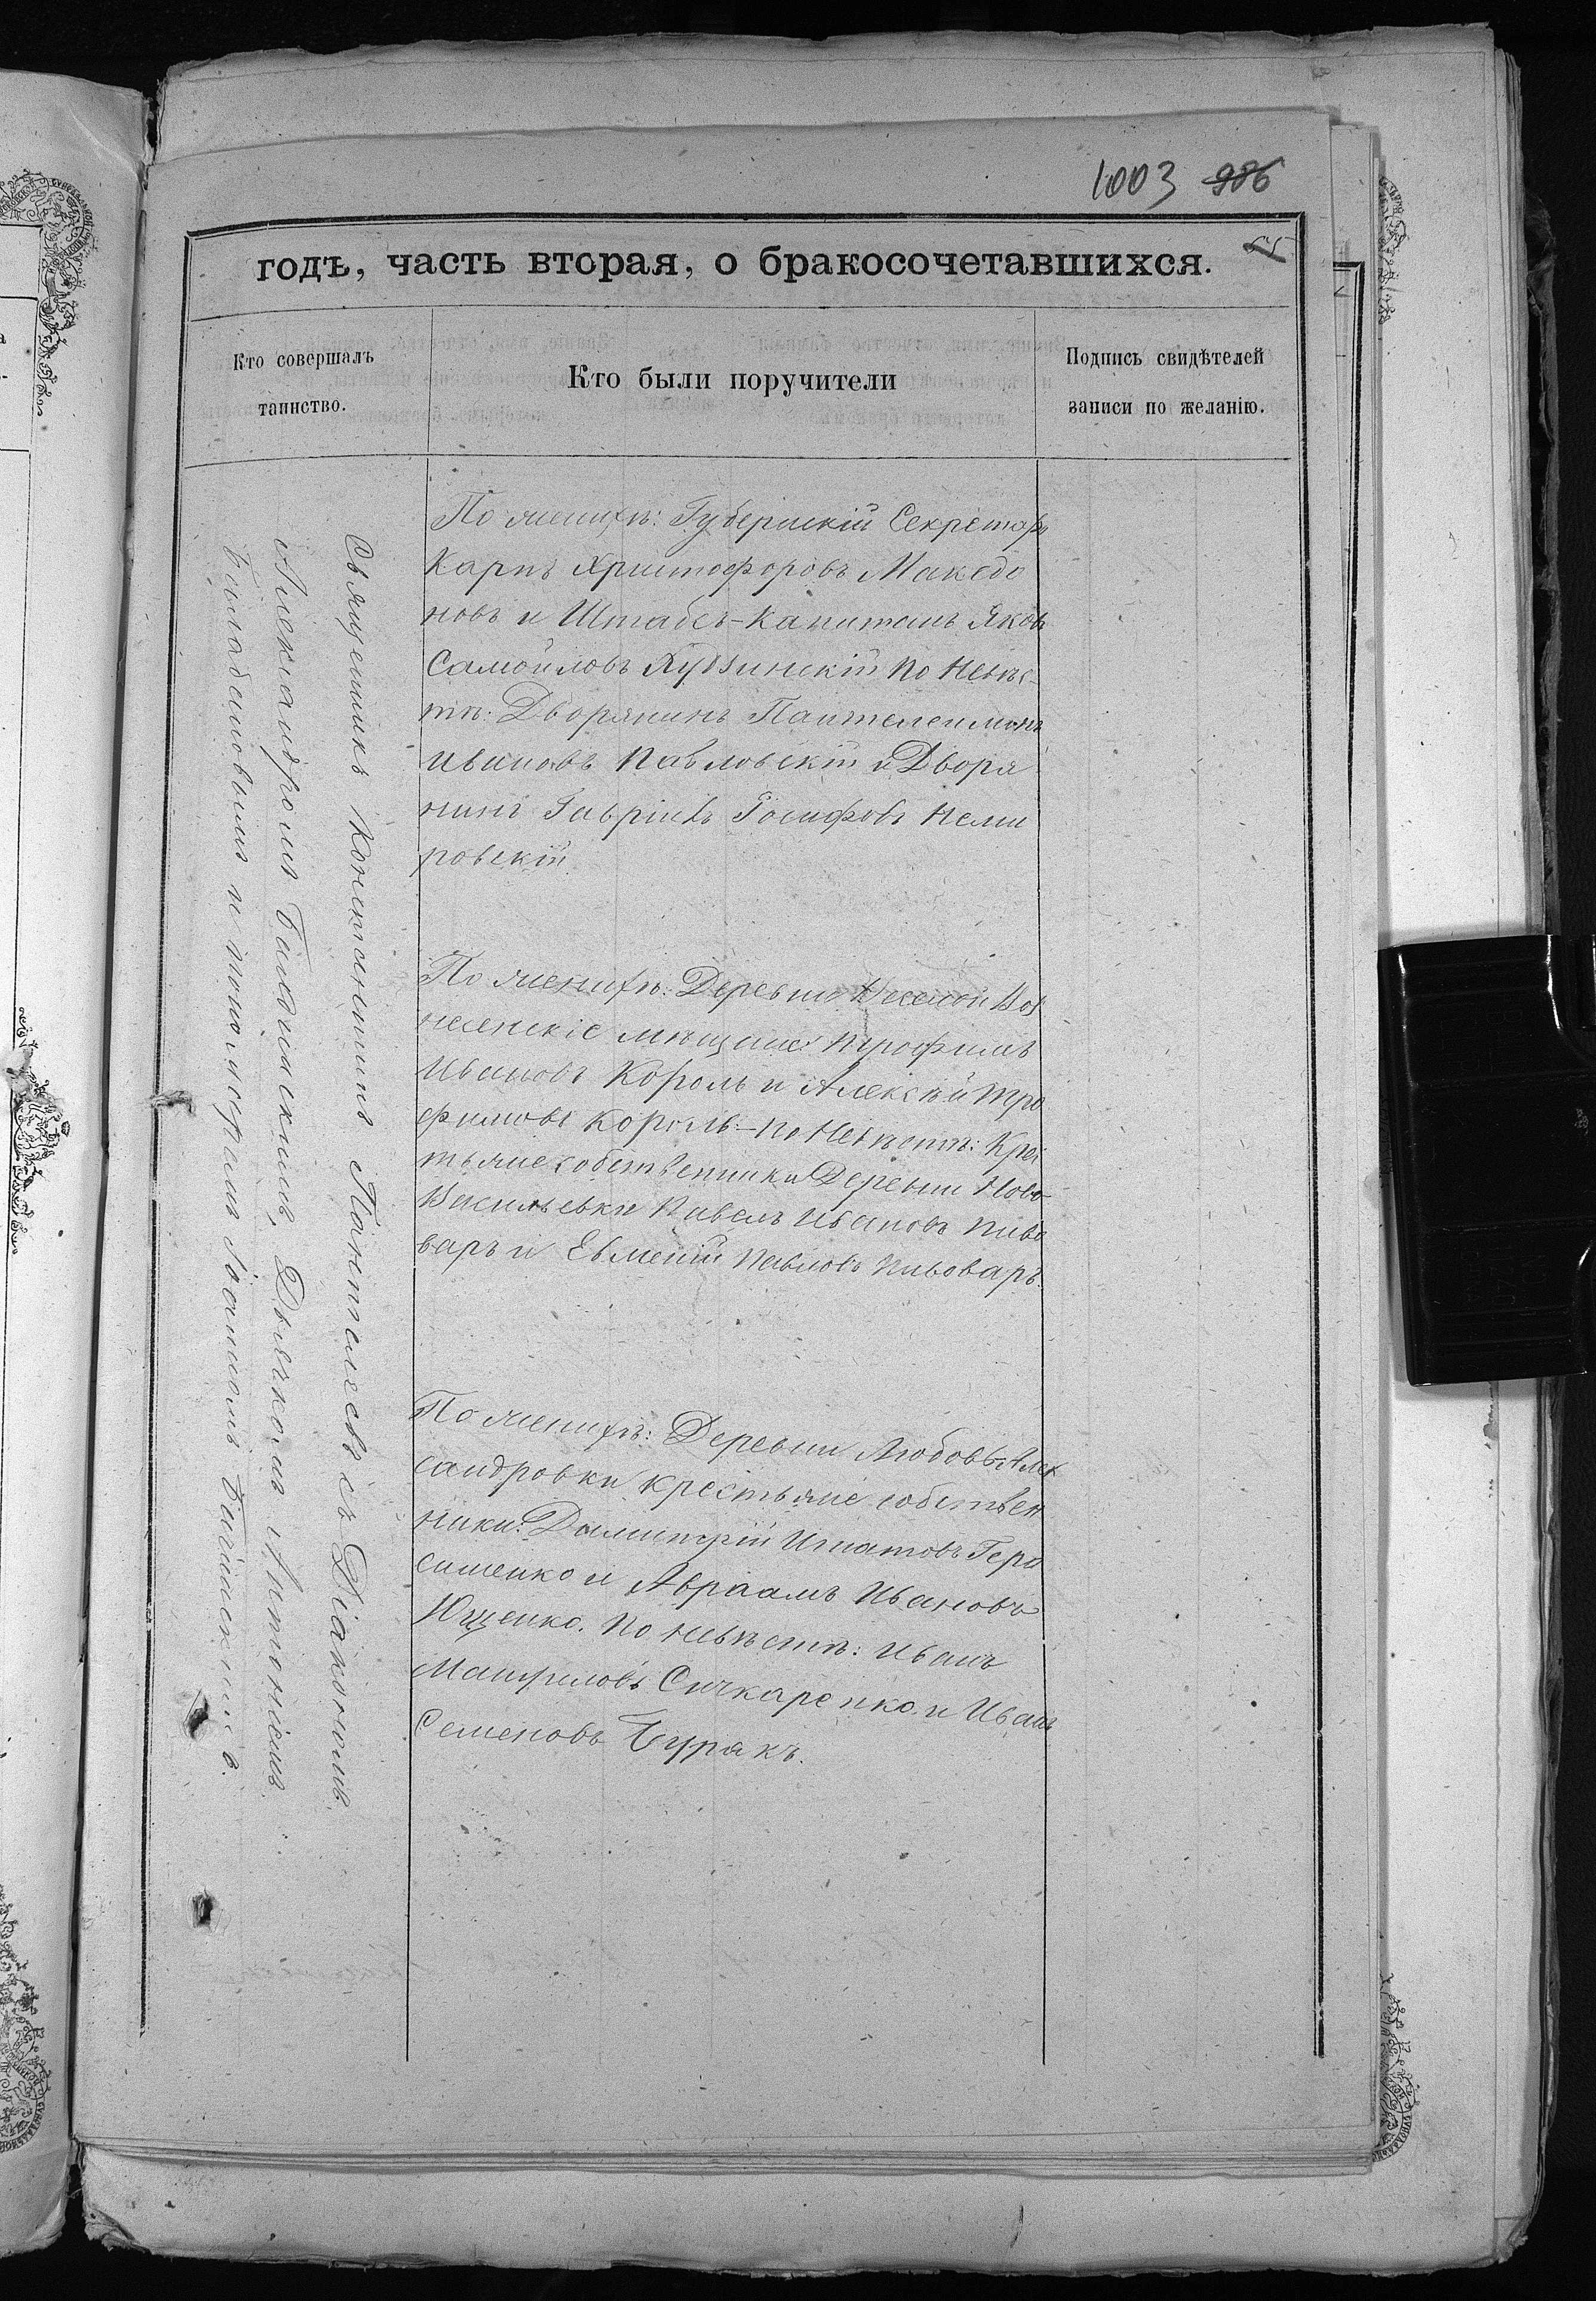 1003 986
55
годъ, часть вторая, о бракосочетавшихся.
Кто совершалъ
таинство.
Кто были поручители
Подпись свидѣтелей
записи по желанію.
Священникъ Константинъ Пантелеевъ съ Діакономъ
Александромъ Дьячкомъ Антоніемъ
Балабановымъ и пономаремъ Іоанномъ
По женихѣ: Губернскій Секретарь
Карпъ Христофоровъ Македо
новъ и Штабсъ-Капитанъ Яковъ
Самойловъ По невѣс-
тѣ: Дворянинъ Пантелеимонъ
Ивановъ Павловскій и Дворя
нинъ Гавріилъ Іосифовъ Неми
ровскій.
По женихѣ: Деревни Веселой Воз
несенскіе мѣщане: Трофимъ
Ивановъ Король и Алексѣй Тро
фимовъ Король:- по Невѣстѣ: Крес
тьяне собственники Деревни Ново-
Васильевки Павелъ Ивановъ Пиво
варъ и Евменій Павловъ Пивоваръ.
По женихѣ: Деревни Любовь Алек
сандровки крестьяне собствен
ники: Димитрій Игнатовъ Гера
сименко и Авраамъ Ивановъ
Ющенко. По невѣстѣ: Иванъ
Сичкаренко и Иванъ
Семеновъ Бурякъ.